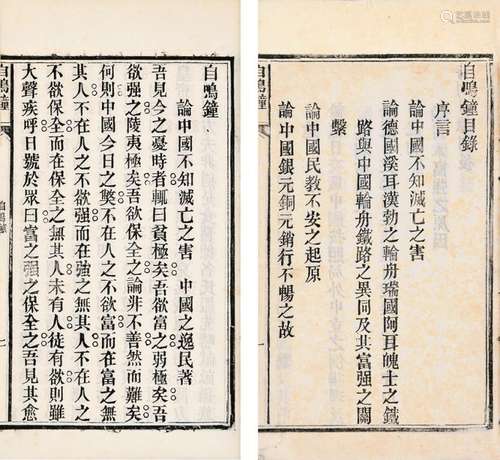 自鳴鐘目錄
序言
論中國不知滅亡之害
論德國漢耳漠勃之輪舟瑞國阿耳魄士之鐵
路與中國輪舟鐵路之異同及其富强之關
繫
論中國民教不安之起原
論中國銀元銅元銷行不暢之故
自鳴鐘
自鳴鐘
論中國不知滅亡之害　中國之逸民著
吾見今之憂時者輒曰貧極矣吾欲富之弱極矣吾
欲强之陵夷極矣吾欲保全之論非不善然而難矣
何則中國今日之獘不在人之不欲富而在富之無
其人不在人之不欲强而在强之無其人不在人之
不欲保全而在保全之無其人未有人徒有欲則雖
大聲疾呼日號於眾曰富之强之保全之吾見其愈
自鳴鐘
一